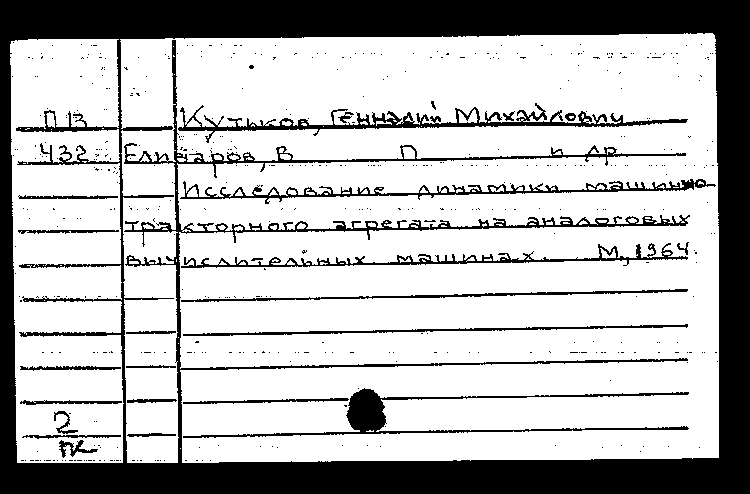 П13 Кутьков, Геннадий Михайлович
432 Елизаров, В П и др
Исследование динамики машинно-
тракторного агрегата на аналоговых
вычислительных машинах. М., 1964.
2
ПК